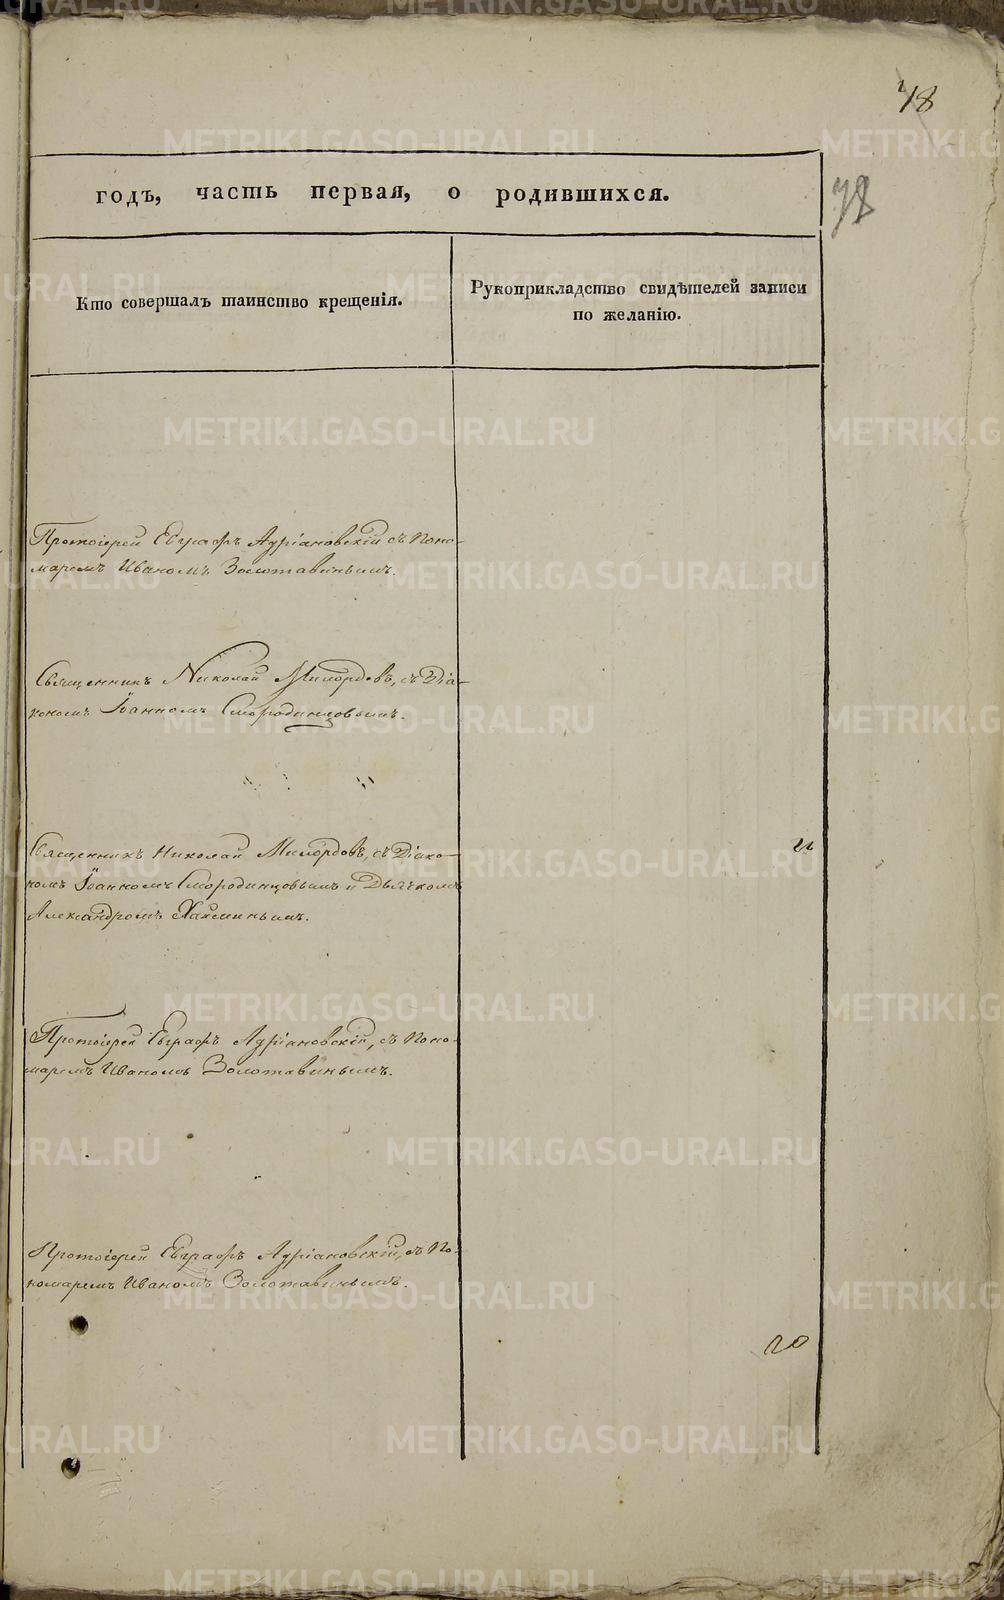 78
годъ, часть первая, о родившихся.
78
Кто совершалъ таинство крещенія.
Рукоприкладство свидѣтелей записи
по желанію.
Протоіерей Евграфъ Адріановскій съ Поно-
маремъ Иваномъ Золотавинымъ.
Священникъ Николай Милордовъ, съ Діа-
кономъ Іоанномъ Смородинцовымъ.
Священникъ Николай Милордовъ, съ Діако-
номъ Іоанномъ Смородинцовымъ и Дьячкомъ
Александромъ
Протоіерей Евграфъ Адріановскій, съ Поно-
маремъ Иваномъ Золотавинымъ.
Протоіерей Евграфъ Адріановскій, съ По-
номаремъ Иваномъ Золотавинымъ.
20
METRIKI.GASO-URAL.RU